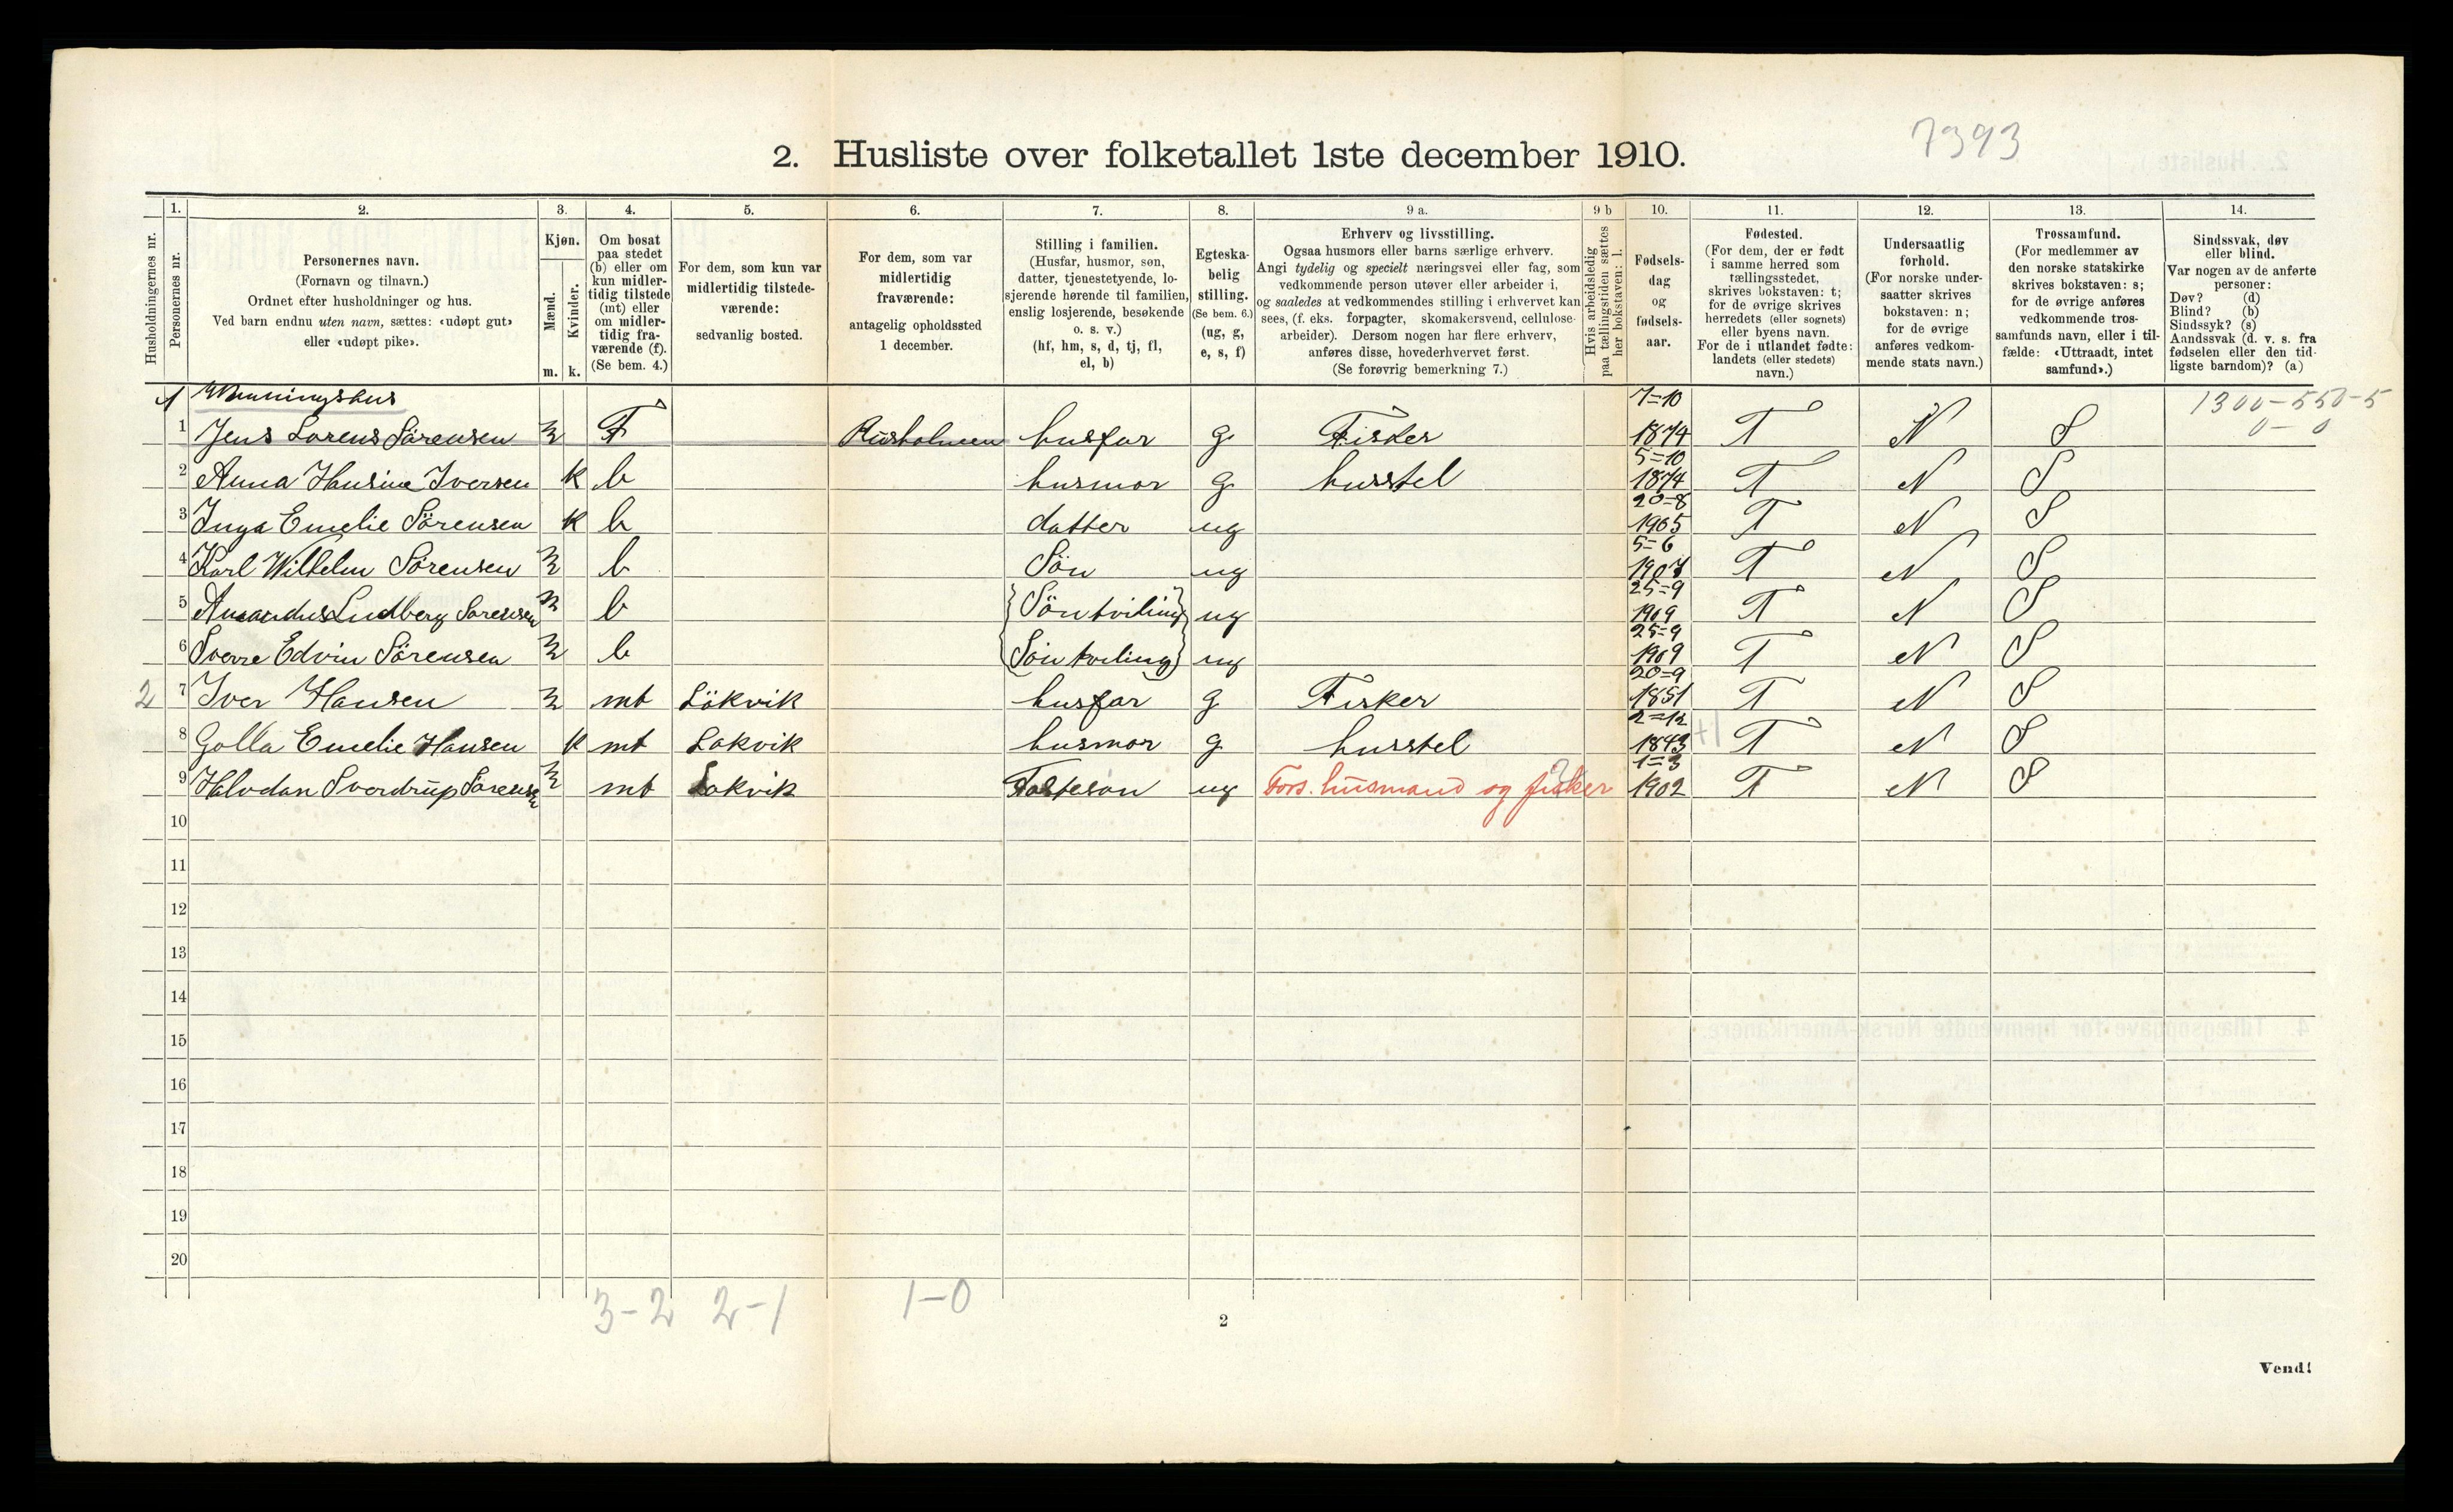 7393
2. Husliste over folketallet 1ste december 1910.
Husholdningernes nr.
1.
Personernes nr.
2.
Personernes navn.
(Fornavn og tilnavn.)
Ordnet efter husholdninger og hus.
Ved barn endnu uten navn, sættes: «udøpt gut»
eller «udøpt pike».
3.
Kjøn.
Mænd.
Kvinder.
m. k.
4.
Om bosat
paa stedet
(b) eller om
kun midler-
tidig tilstede
(mt) eller
om midler-
tidig fra-
værende (f).
(Se bem. 4.)
5.
For dem, som kun var
midlertidig tilstede-
værende:
sedvanlig bosted.
6.
For dem, som var
midlertidig
fraværende:
antagelig opholdssted
1 december.
7.
Stilling i familien.
(Husfar, husmor, søn,
datter, tjenestetyende, lo-
sjerende hørende til familien,
enslig losjerende, besøkende
o. s. v.)
(hf, hm, s, d, tj, fl,
el, b)
8.
Egteska-
belig
stilling.
(Se bem. 6.)
(ug, g,
e, s, f)
9 a.
Erhverv og livsstilling.
Ogsaa husmors eller barns særlige erhverv.
Angi tydelig og specielt næringsvei eller fag, som
vedkommende person utøver eller arbeider i,
og saaledes at vedkommendes stilling i erhvervet kan
sees, (f. eks. forpagter, skomakersvend, cellulose-
arbeider). Dersom nogen har flere erhverv,
anføres disse, hovederhvervet først.
(Se forøvrig bemerkning 7.)
9 b
Hvis arbeidsledig
paa tællingstiden sættes
her bokstaven: l.
10.
Fødsels-
dag
og
fødsels-
aar.
11.
Fødested.
(For dem, der er født
i samme herred som
tællingsstedet,
skrives bokstaven: t;
for de øvrige skrives
herredets (eller sognets)
eller byens navn.
For de i utlandet fødte:
landets (eller stedets)
navn.)
12.
Undersaatlig
forhold.
(For norske under-
saatter skrives
bokstaven: n;
for de øvrige
anføres vedkom-
mende stats navn.)
13.
Trossamfund.
(For medlemmer av
den norske statskirke
skrives bokstaven: s;
for de øvrige anføres
vedkommende tros-
samfunds navn, eller i til-
fælde: «Uttraadt, intet
samfund».)
14.
Sindssvak, døv
eller blind.
Var nogen av de anførte
personer:
Døv? (d)
Blind? (b)
Sindssyk? (s)
Aandssvak (d. v. s. fra
fødselen eller den tid-
ligste barndom)? (a)
1300-550-5
0-0
1 Vaaningshus
1 Jens Lorens Sørensen m F husfar g Fisker 7=10 1874 T N S
2 Anna Hansine Iversen k b husmor g husstel 5=10 1874 T N S
3 Inga Emelie Sørensen k b datter ug 20=8 1905 T N S
4 Karl Wilhelm Sørensen m b Søn ug 5=6 1907 T N S
5 Amandus Ludberg Sørensen m b {Søn tviling} ug 25=9 1909 T N S
6 Sverre Edvin Sørensen m b {Søn tviling} ug 25=9 1909 T N S
2 7 Iver Hansen m mt Lökvik husfar g Fisker 20=9 1851 T N S
8 Golla Emelie Hansen k mt Lokvik husmor g husstel 2=12 1843 +1 T N S
9 Halvdan Sverdrup Sørensen m mt Lokvik Fostersøn ug Fors. husmand og fisker 1=3 1902 T N S
10
11
12
13
14
15
16
17
18
19
20
3-2 2-1 1-0
2
Vend!